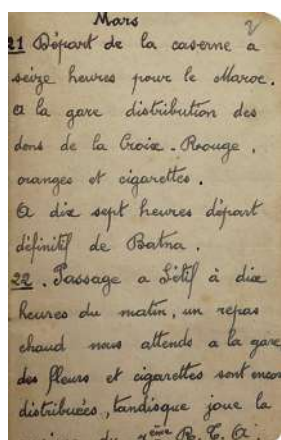 Mars
2
21 Départ de la caserne a
seize heures pour le Maroc.
a la gare distribution des
dons de la Croix-Rouge,
oranges et cigarettes.
A dix sept heures départ
définitif de Batna.
22. Passage a Sétif à dix
heures du matin, un repas
chaud nous attends a la gare
des fleurs et cigarettes sont encor
distribuées, tandisque joue la
du 7ème R. T. A.